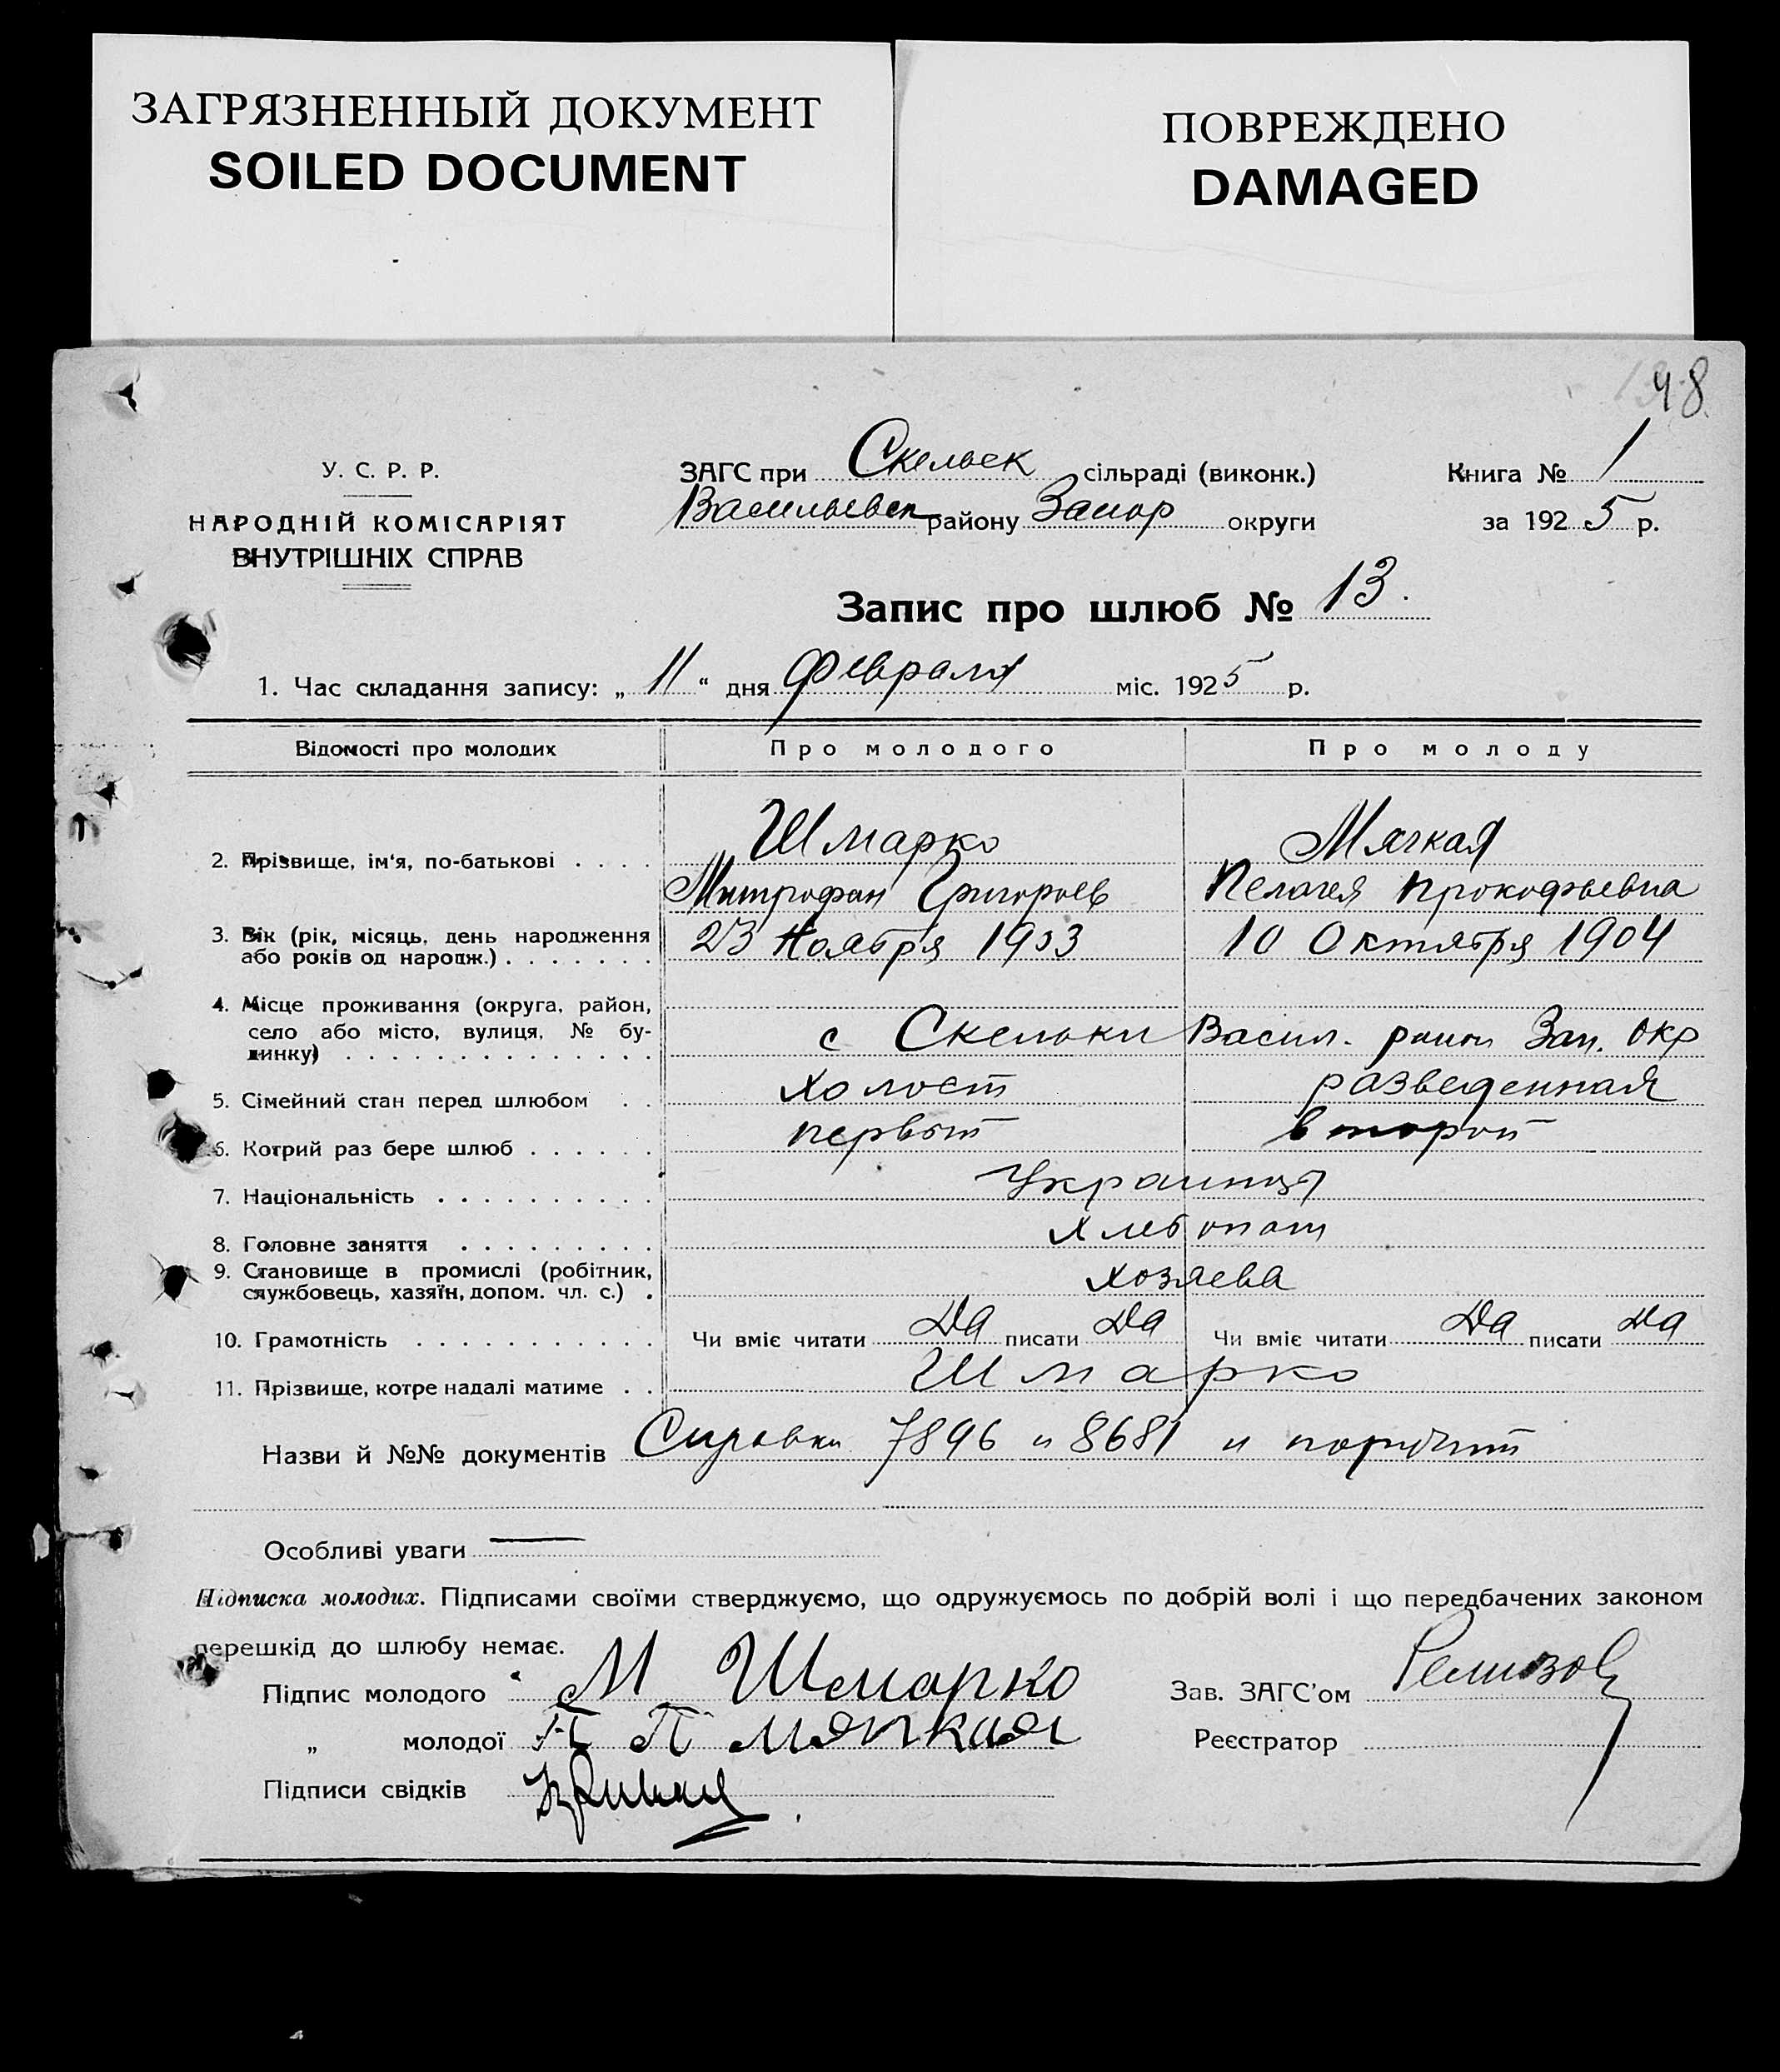 ЗАГРЯЗНЕННЫЙ ДОКУМЕНТ
SOILED DOCUMENT
ПОВРЕЖДЕНО
DAMAGED
98.
У. С. Р. Р.
НАРОДНІЙ КОМІСАРІЯТ
ВНУТРІШНІХ СПРАВ
ЗАГС при Скельск сільраді (виконк.)
Васильевск району Запор округи
Книга № 1
за 1925 р.
Запис про шлюб № 13.
1. Час складання запису: „ 11 “ дня февраля міс. 1925 р.
Відомості про молодих Про молодого Про молоду
Шмарко Мягкая
2. Прізвище, ім'я, по-батькові . . . . Митрофан Григорьев Пелагея Прокофьевна
3. Вік (рік, місяць, день народження або років од народж.) . . . . . . . 23 Ноября 1903 10 Октября 1904
4. Місце проживання (округа, район, село або місто, вулиця, № будинку) . . . . . . . . . . . . . . с Скельки Васил. район Зап. окр
5. Сімейний стан перед шлюбом . . холост разведенная
6. Котрий раз бере шлюб . . . . . . первый второй
7. Національність . . . . . . . . . . Украинцы
8. Головне заняття . . . . . . . . . хлебопаш
9. Становище в промислі (робітник, службовець, хазяїн, допом. чл. с.) . хозяева
10. Грамотність . . . . . . . . . . . Чи вміє читати Да писати Да Чи вміє читати Да писати Да
11. Прізвище, котре надалі матиме . . Шмарко
Назви й №№ документів Справки 7896 и 8681 и
Особливі уваги —
Підписка молодих. Підписами своїми стверджуємо, що одружуємось по добрій волі і що передбачених законом
перешкід до шлюбу немає.
Підпис молодого М Шмарко Зав. ЗАГС'ом Ремизов
„ молодої П П мяхкая Реєстратор
Підписи свідків